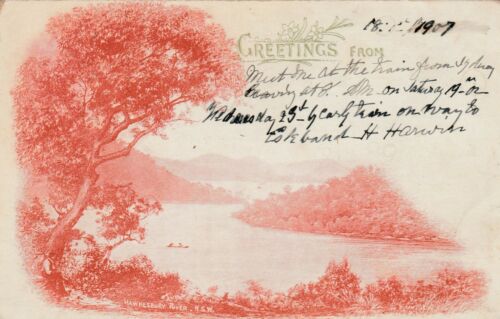 18. 1st 1907
GREETINGS FROM
Meet me at the train from Sydney
leaving at 8. on Saturday 19 or
Wednesday 23d by early train on way to
Eskbank H Harwin
HAWKESBURY RIVER, N.S.W.